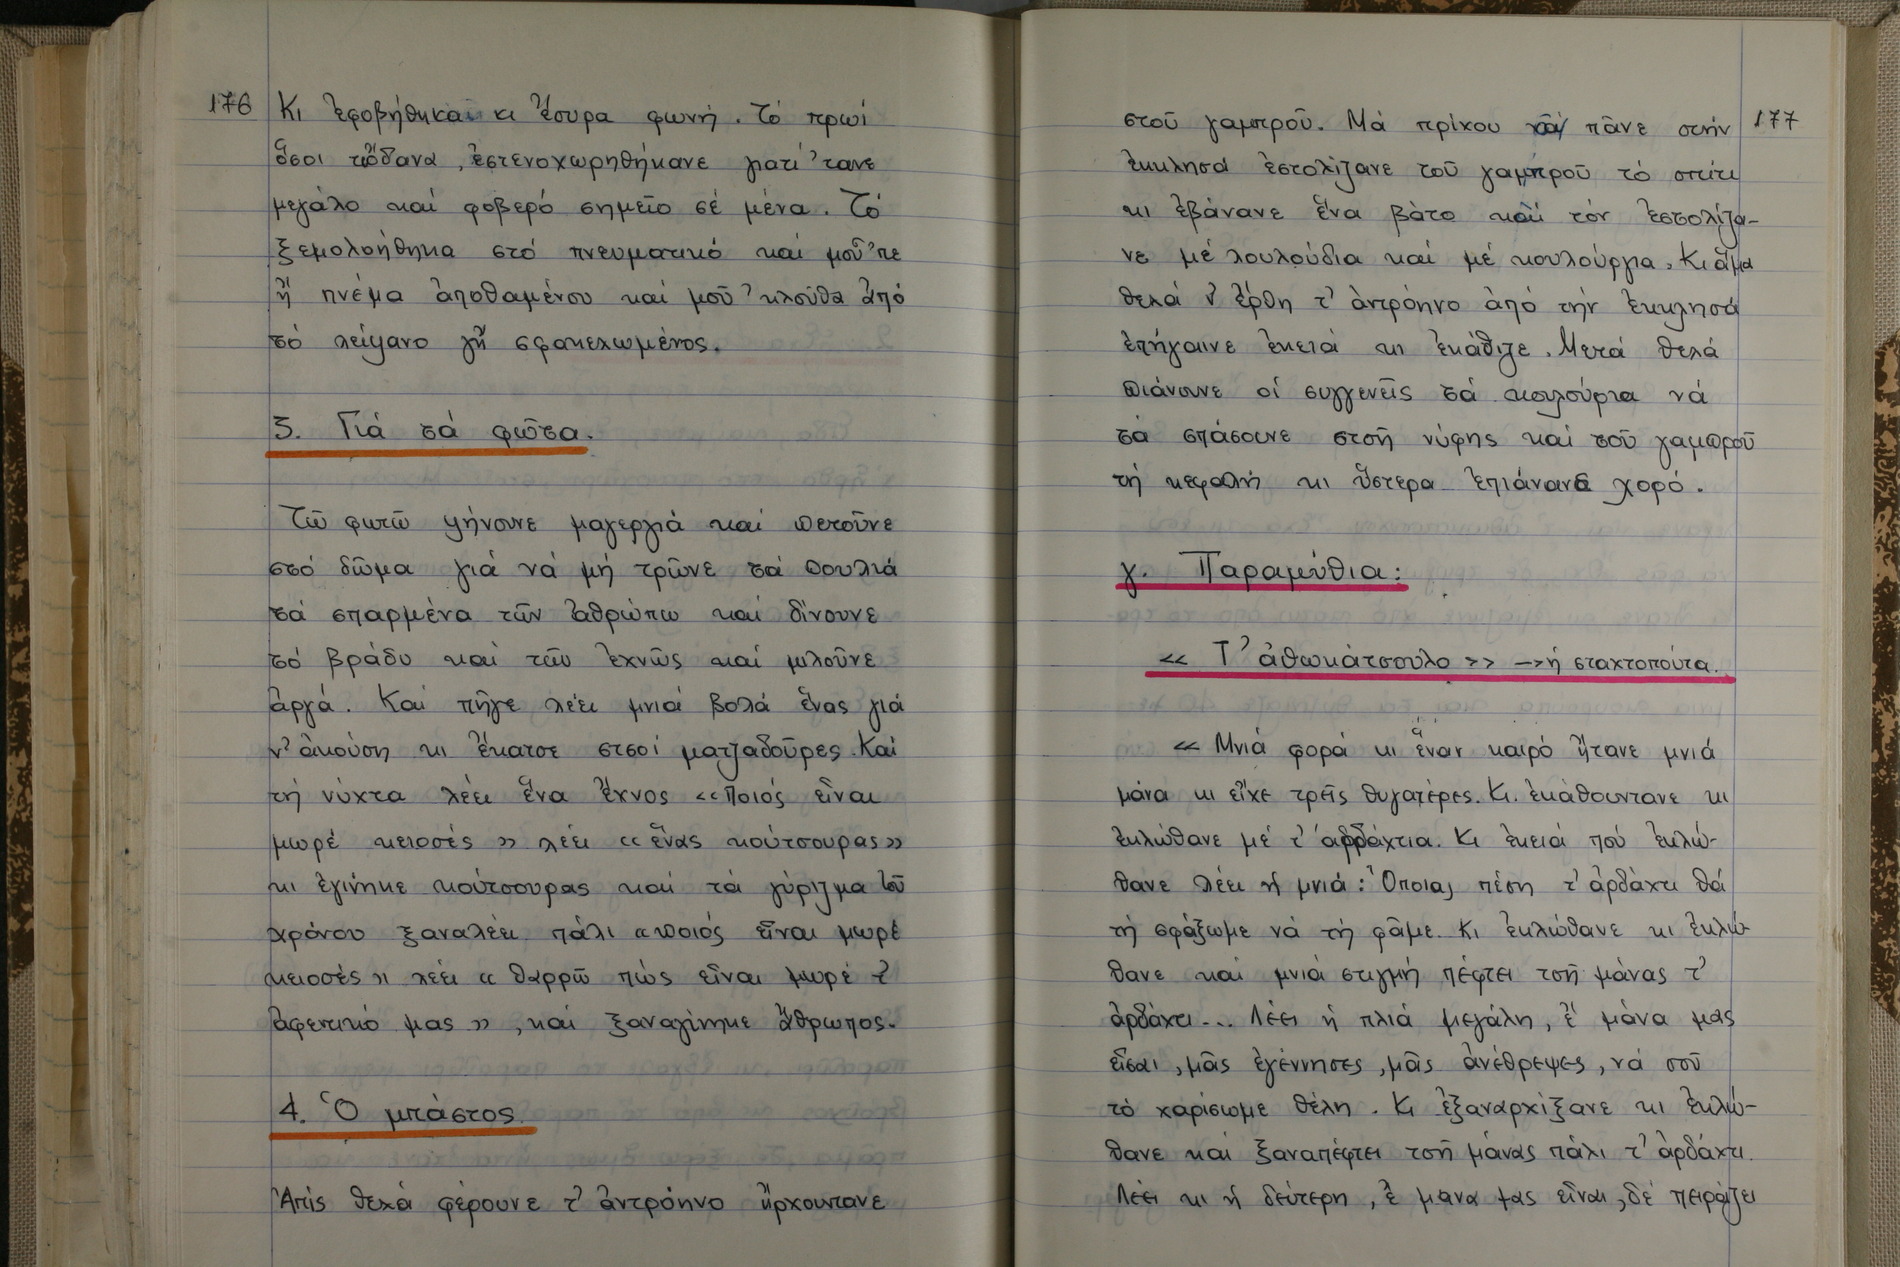 176
Κι ἐφοβήθηκα κι ἔσυρα φωνή. Τό πρωί
ὅσοι τὄδανα, ἐστενοχωρηθήκανε γιατί 'τανε
μεγάλο καί φοβερό σημεῖο σέ μένα. Τό
ξεμολοήθηκα στό πνευματικό καί μοῦ 'πε
ἤ πνέμα ἀποθαμένου καί μοῦ 'κλούθα ἀπό
τό λείψανο γἤ σφακελωμένος.
3. Γιά τά φῶτα.
Τῶ φωτῶ ψήνουνε μαγεργιά καί πετοῦνε
στό δῶμα γιά νά μή τρῶνε τά πουλιά
τά σπαρμένα τῶν ἀθρώπω καί δίνουνε
τό βράδυ καί τῶν ἐχνῶς καί μιλοῦνε
ἀργά. Καί πῆγε λέει μνιά βολά ἕνας γιά
ν' ἀκούση κι ἔκατσε στσοί ματζαδοῦρες. Καί
τή νύχτα λέει ἕνα ἔχνος «Ποιός εἶναι
μωρέ κειοσές» λέει «ἕνας κούτσουρας»
κι ἐγίνηκε κούτσουρας καί τά γύριζμα τοῦ
χρόνου ξαναλέει πάλι «ποιός εἶναι μωρέ
κειοσές» λέει «θαρρῶ πώς εἶναι μωρέ τ'
ἀφεντικό μας», καί ξαναγίνηκε ἄθρωπος.
4. Ὁ μπάστος.
Ἀπίς θελά φέρουνε τ' ἀντρόηνο ἤρχουντανε
177
στοῦ γαμπροῦ. Μά πρίχου πᾶνε στήν
ἐκκλησά ἐστολίζανε τοῦ γαμπροῦ τό σπίτι
κι ἐβάνανε ἕνα βάτο καί τόν ἐστολίζα-
νε μέ λουλούδια καί μέ κουλούργια. Κι ἅμα
θελά ν' ἔρθη τ' ἀντρόηνο ἀπό τήν ἐκκλησά
ἐπήγαινε ἐκειά κι ἐκάθιζε. Μετά θελά
πιάνουνε οἱ συγγενεῖς τά κουλούρια νά
τά σπάσουνε στσῆ νύφης καί τοῦ γαμπροῦ
τή κεφαλή κι ὕστερα ἐπιάνανε χορό.
γ. Παραμύθια:
«Τ' ἀθωκάτσουλο» → ἡ σταχτοπούτα.
«Μνιά φορά κι ἕναν καιρό ἤτανε μνιά
μάνα κι εἶχε τρεῖς θυγατέρες. Κι ἐκάθουντανε κι
ἐκλώθανε μέ τ' ἀρδάχτια. Κι ἐκειά πού ἐκλώ-
θανε λέει ἡ μνιά: Ὁποιας πέση τ' ἀρδάχτι θά
τή σφάξωμε νά τή φᾶμε. Κι ἐκλώθανε κι ἐκλώ-
θανε καί μνιά στιγμή πέφτει τσῆ μάνας τ'
ἀρδάχτι... Λέει ἡ πλιά μεγάλη, ἔ μάνα μας
εἶσαι, μᾶς ἐγέννησες, μᾶς ἀνέθρεψες, νά σοῦ
τό χαρίσωμε θέλη. Κι ἐξαναρχίξανε κι ἐκλώ-
θανε καί ξαναπέφτει τσῆ μάνας πάλι τ' ἀρδάχτι.
Λέει κι ἡ δεύτερη, ἔ μάνα μας εἶναι, δέ πειράζει